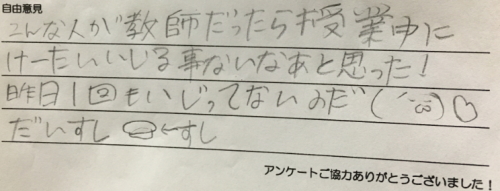 自由意見
こんな人が教師だったら授業中に
けーたいいじる事ないなあと思った!
昨日1回もいじってないのだ(´･ω･)♡
だいすし ←すし
アンケートご協力ありがとうございました!